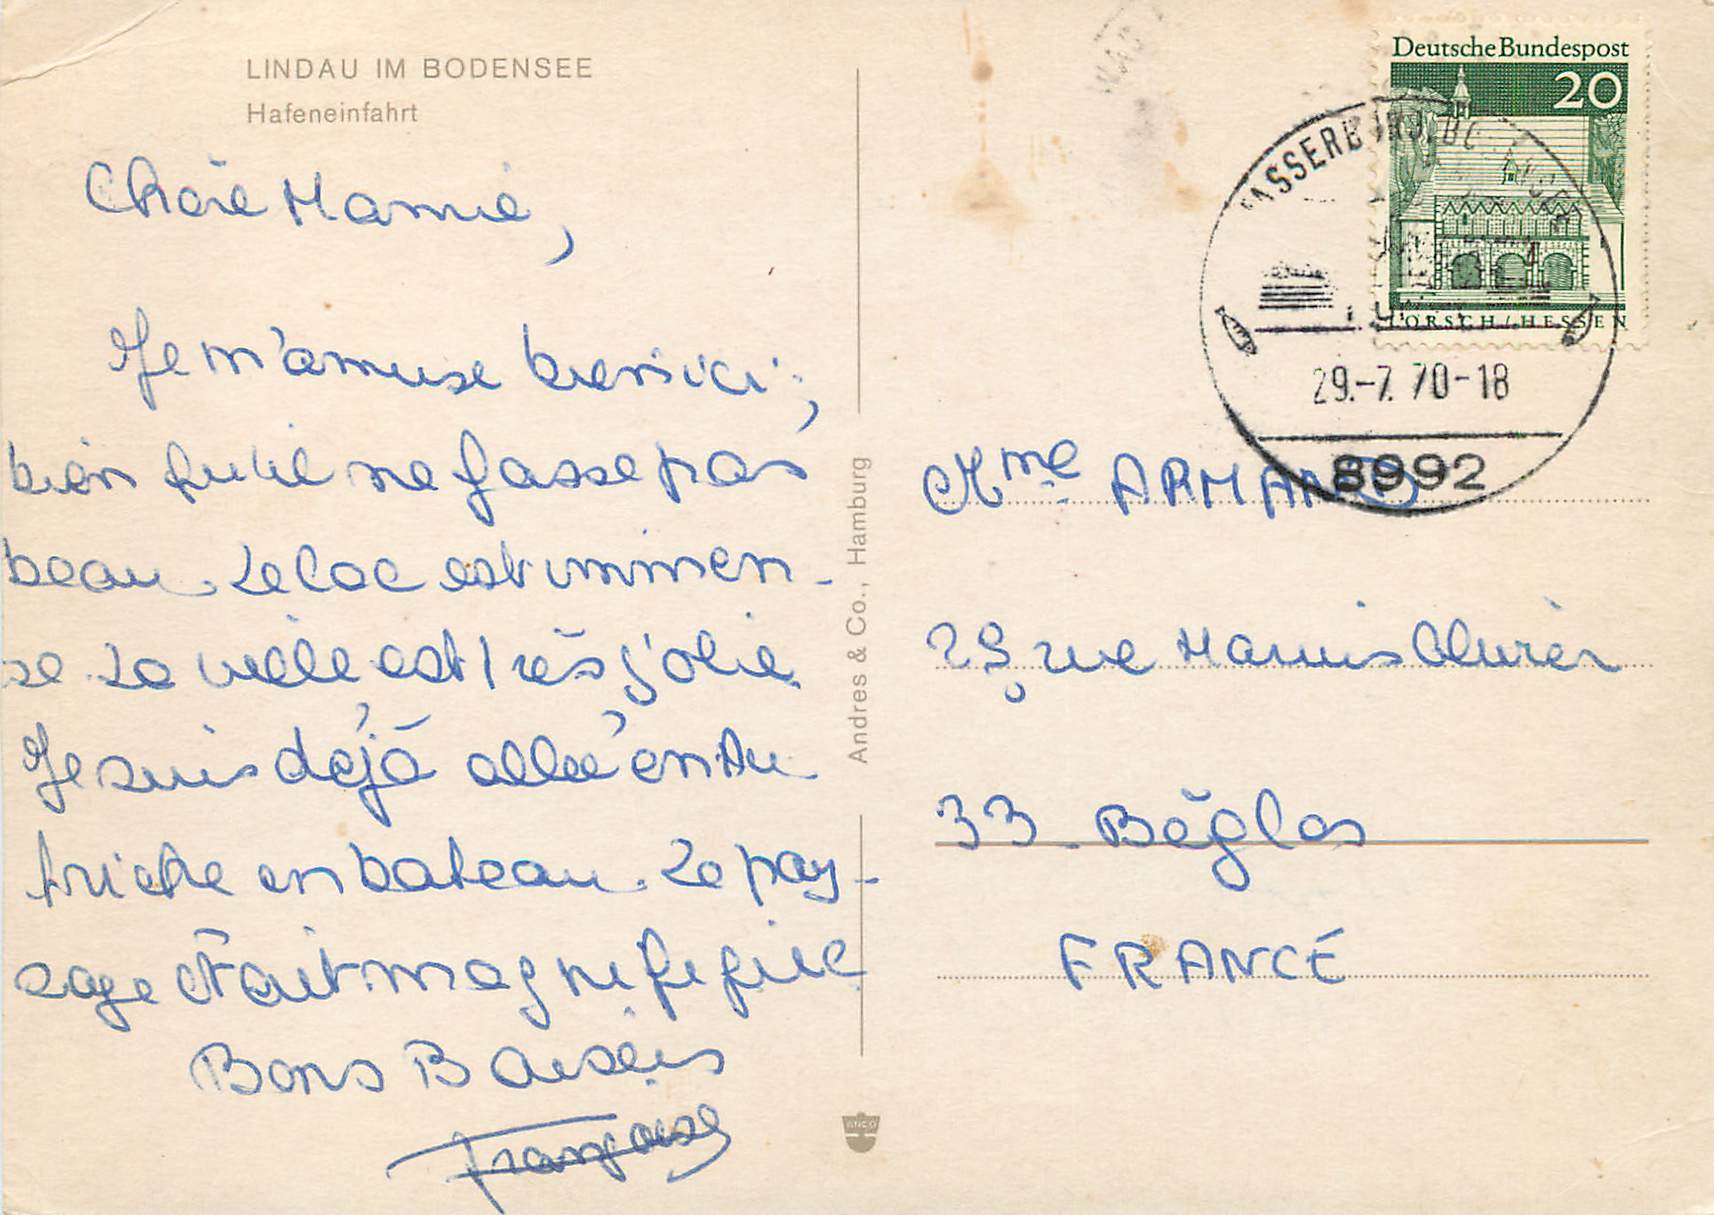 LINDAU IM BODENSEE
Hafeneinfahrt
Chère Mamie,
Je m'amuse bien ici,
bien qu'il ne fasse pas
beau. Le lac est immen-
se. La ville est très jolie
Je suis déjà allée en Au
triche en bateau. Le pay-
sage était magnifique
Bons Baisers
Françoise
Andres & Co., Hamburg
ANCO
Deutsche Bundespost
20
LORSCH / HESSEN
29.-7. 70-18
8992
Mme ARMAND
29 rue Marius
33 - Bègles
FRANCE